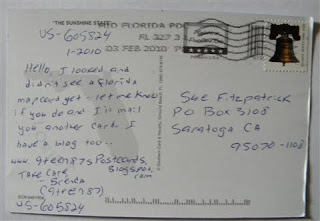 "THE SUNSHINE STATE"
US-605824
1-2010
MID FLORIDA P
FL 327 3
03 FEB 2010 P
Hello, I looked and
didn't see a Florida
mapcard yet - let me know
if you do and I'll mail
you another card. I
have a blog too..
www.green87sPostcards.
blogspot.com
Take Care
- Brenda
(green87)
US-605824
Sue Fitzpatrick
PO Box 3108
Saratoga CA
95070-1108